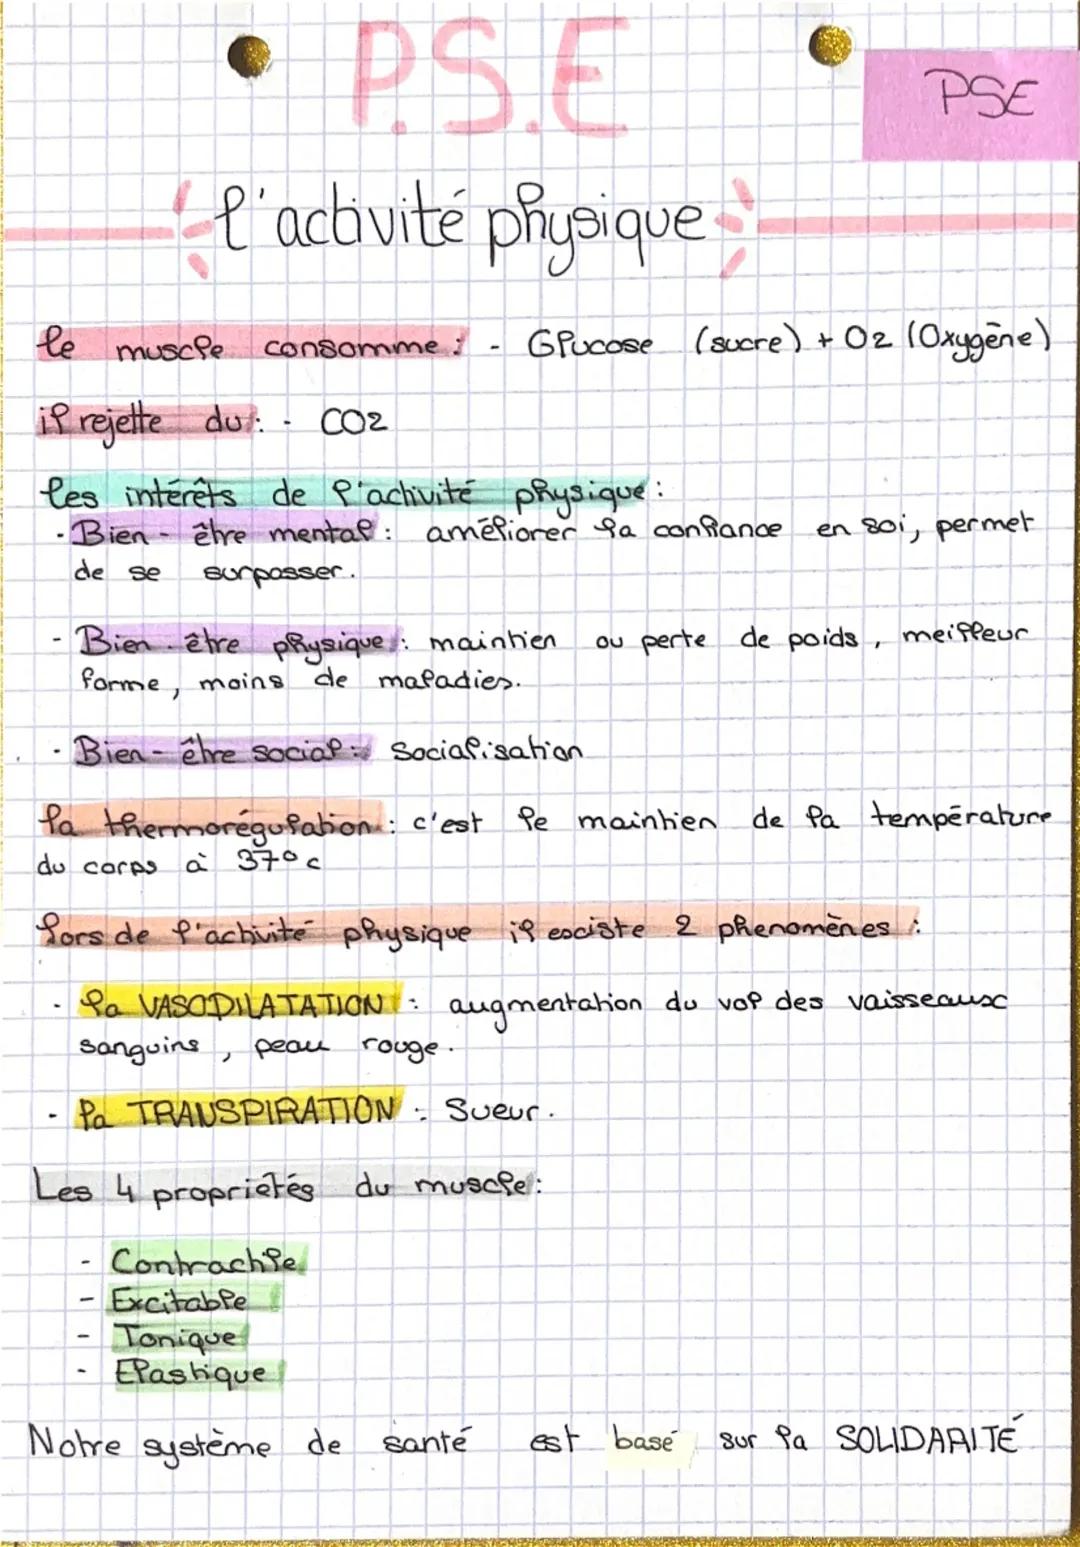 P.S.E
PSE
l'activité physique
le muscle consomme : - Glucose (sucre) + O2 (Oxygène)
il rejette du : - CO2
les intérêts de l'activité physique :
- Bien - être mental : améliorer la confiance en soi, permet
de se surpasser.
- Bien - être physique : maintien ou perte de poids, meilleur
forme, moins de maladies.
- Bien - être social : Socialisation
la thermorégulation : c'est le maintien de la température
du corps à 37°c
lors de l'activité physique il existe 2 phenomènes :
- la VASODILATATION : augmentation du vol des vaisseaux
sanguins, peau rouge.
- la TRANSPIRATION : Sueur.
Les 4 propriétés du muscle :
- Contractile
- Excitable
- Tonique
- Elastique
Notre système de santé est basé sur la SOLIDARITÉ